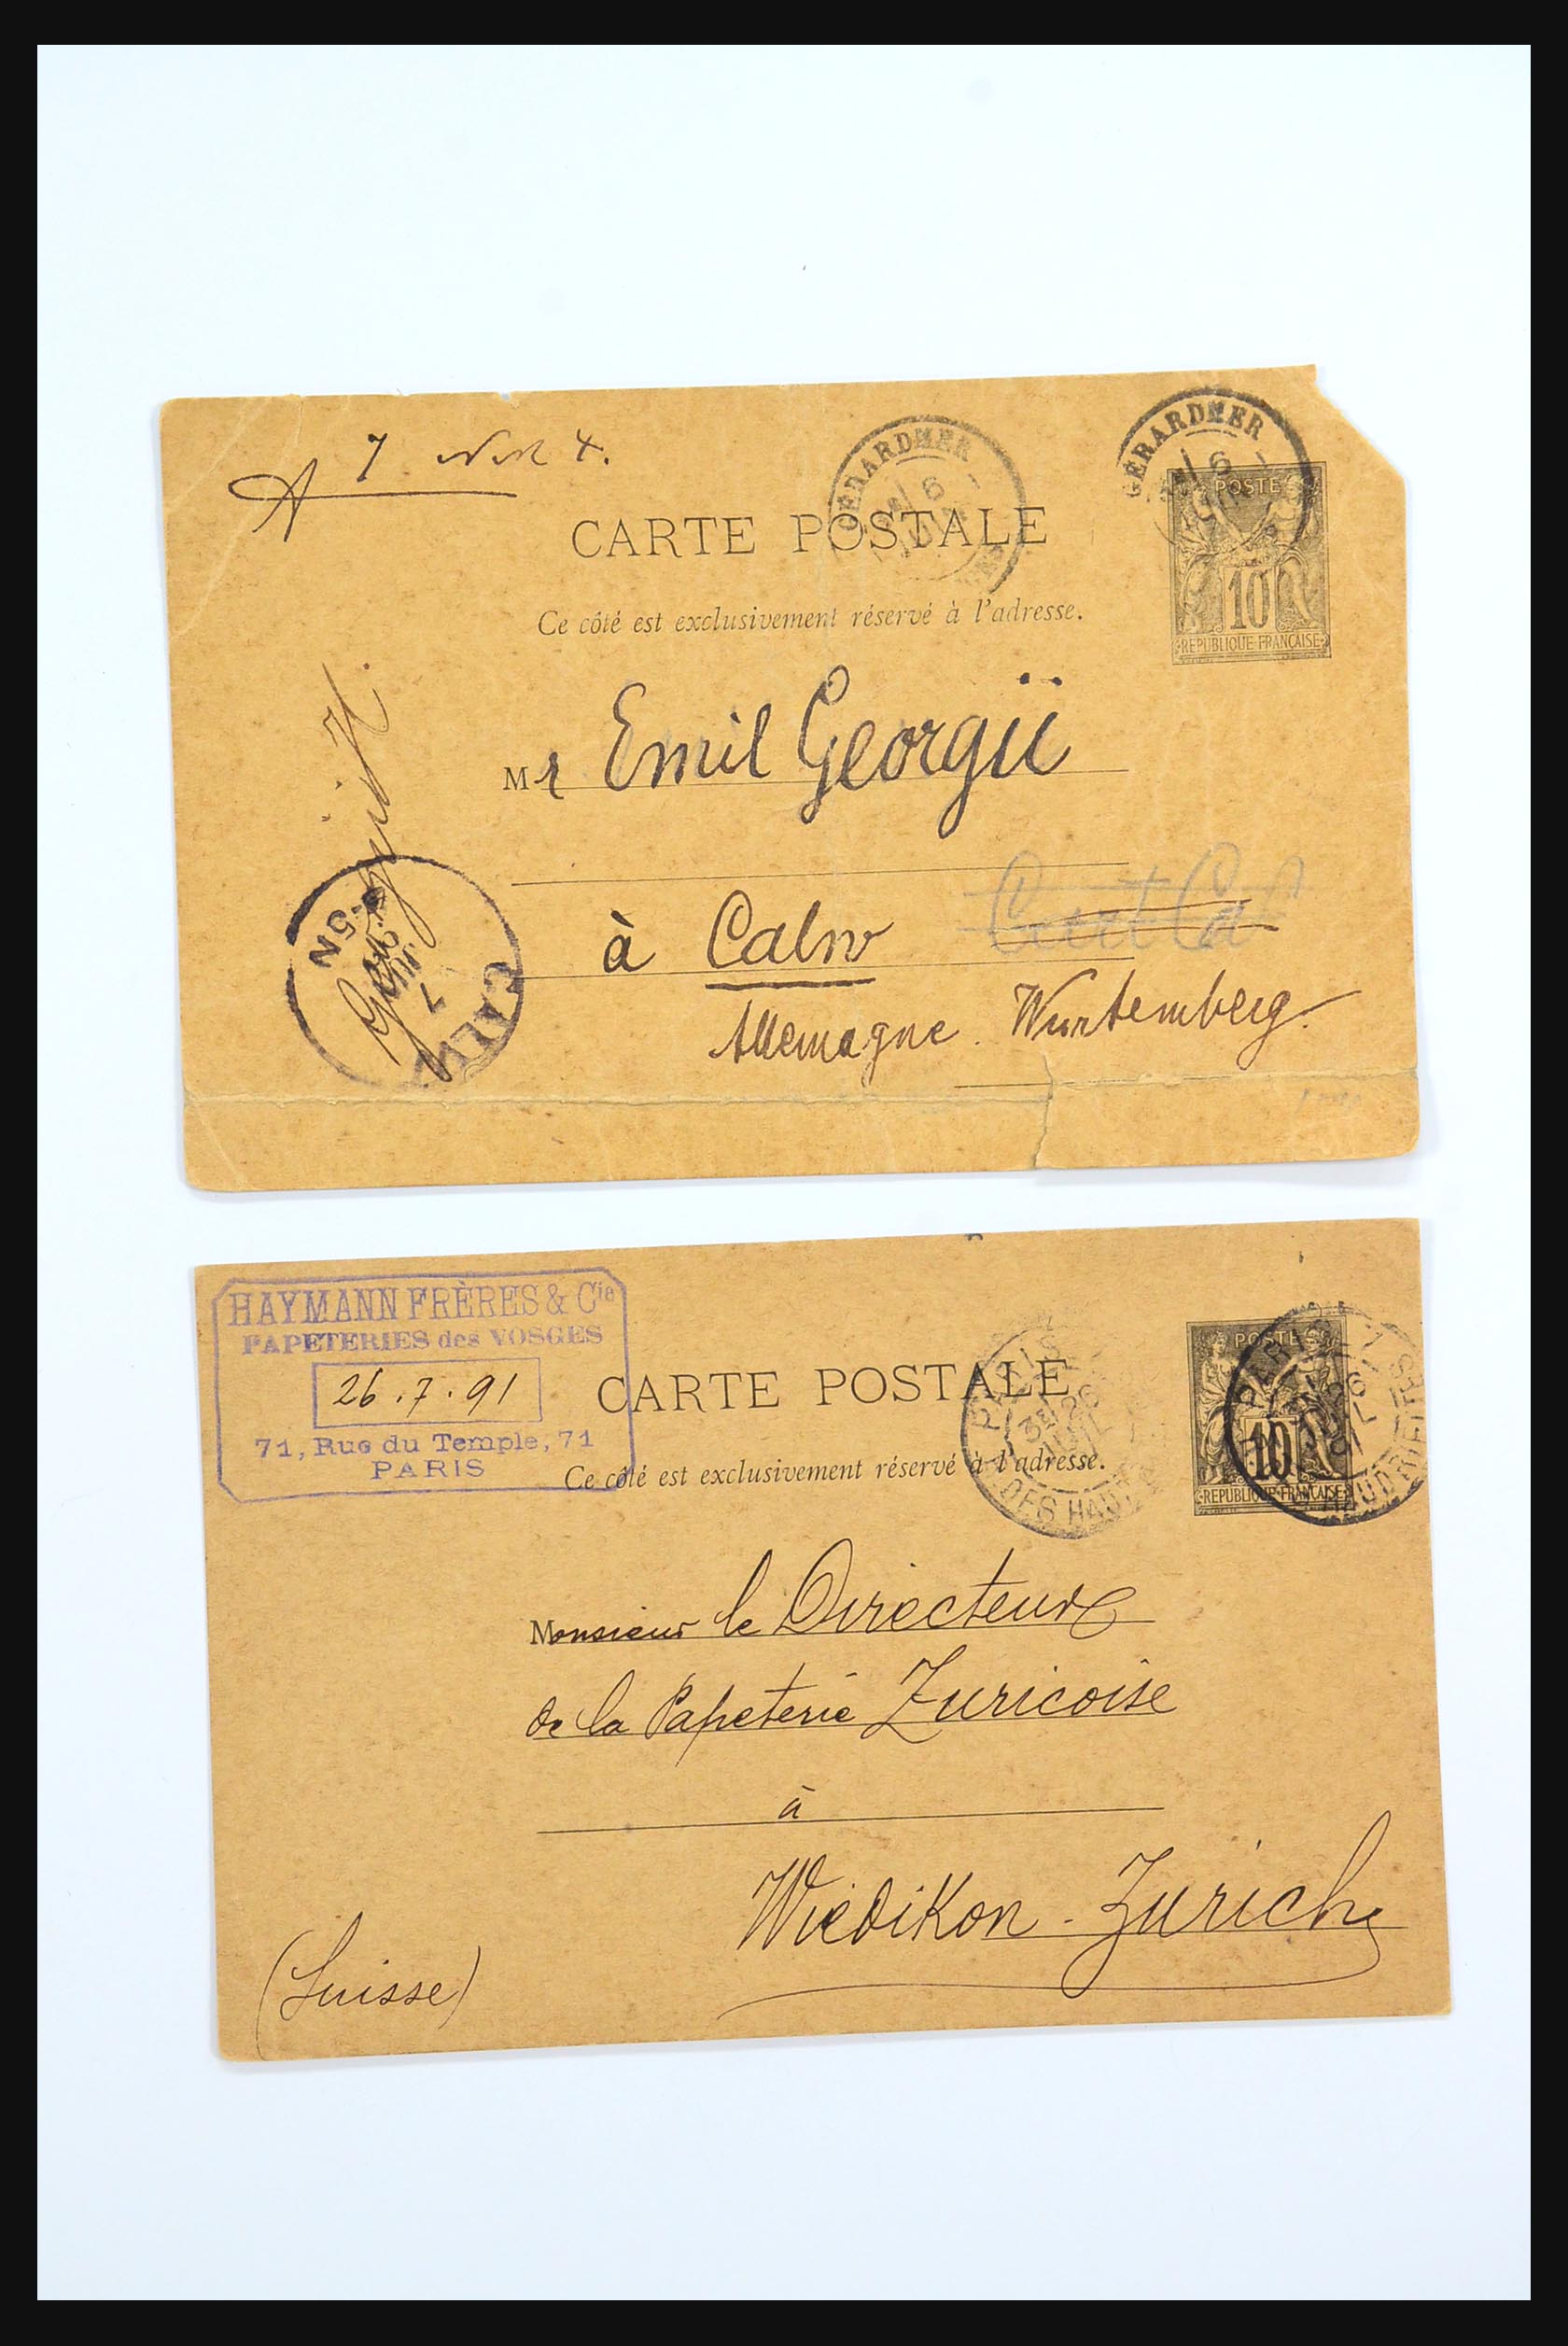 7
GÉRARDMER
6
GÉRARDMER
6
CARTE POSTALE
POSTE
10
REPUBLIQUE FRANÇAISE
Ce côté est exclusivement réservé à l'adresse.
Mr Emil Georgii
à Calw
Allemagne. Wurtemberg.
4-5N
7
CALW
HAYMANN FRÈRES & Cie
PAPETERIES des VOSGES
26.7.91
71, Rue du Temple, 71
PARIS
CARTE POSTALE
PARIS
3E 26
JUIL
DES HAUD
POSTE
10
REPUBLIQUE FRANÇAISE
PARIS
26
91
HAUDRIETTES
Ce côté est exclusivement réservé à l'adresse.
Monsieur le Directeur
de la Papeterie Zuricoise
à
Wiedikon - Zurich
(Suisse)